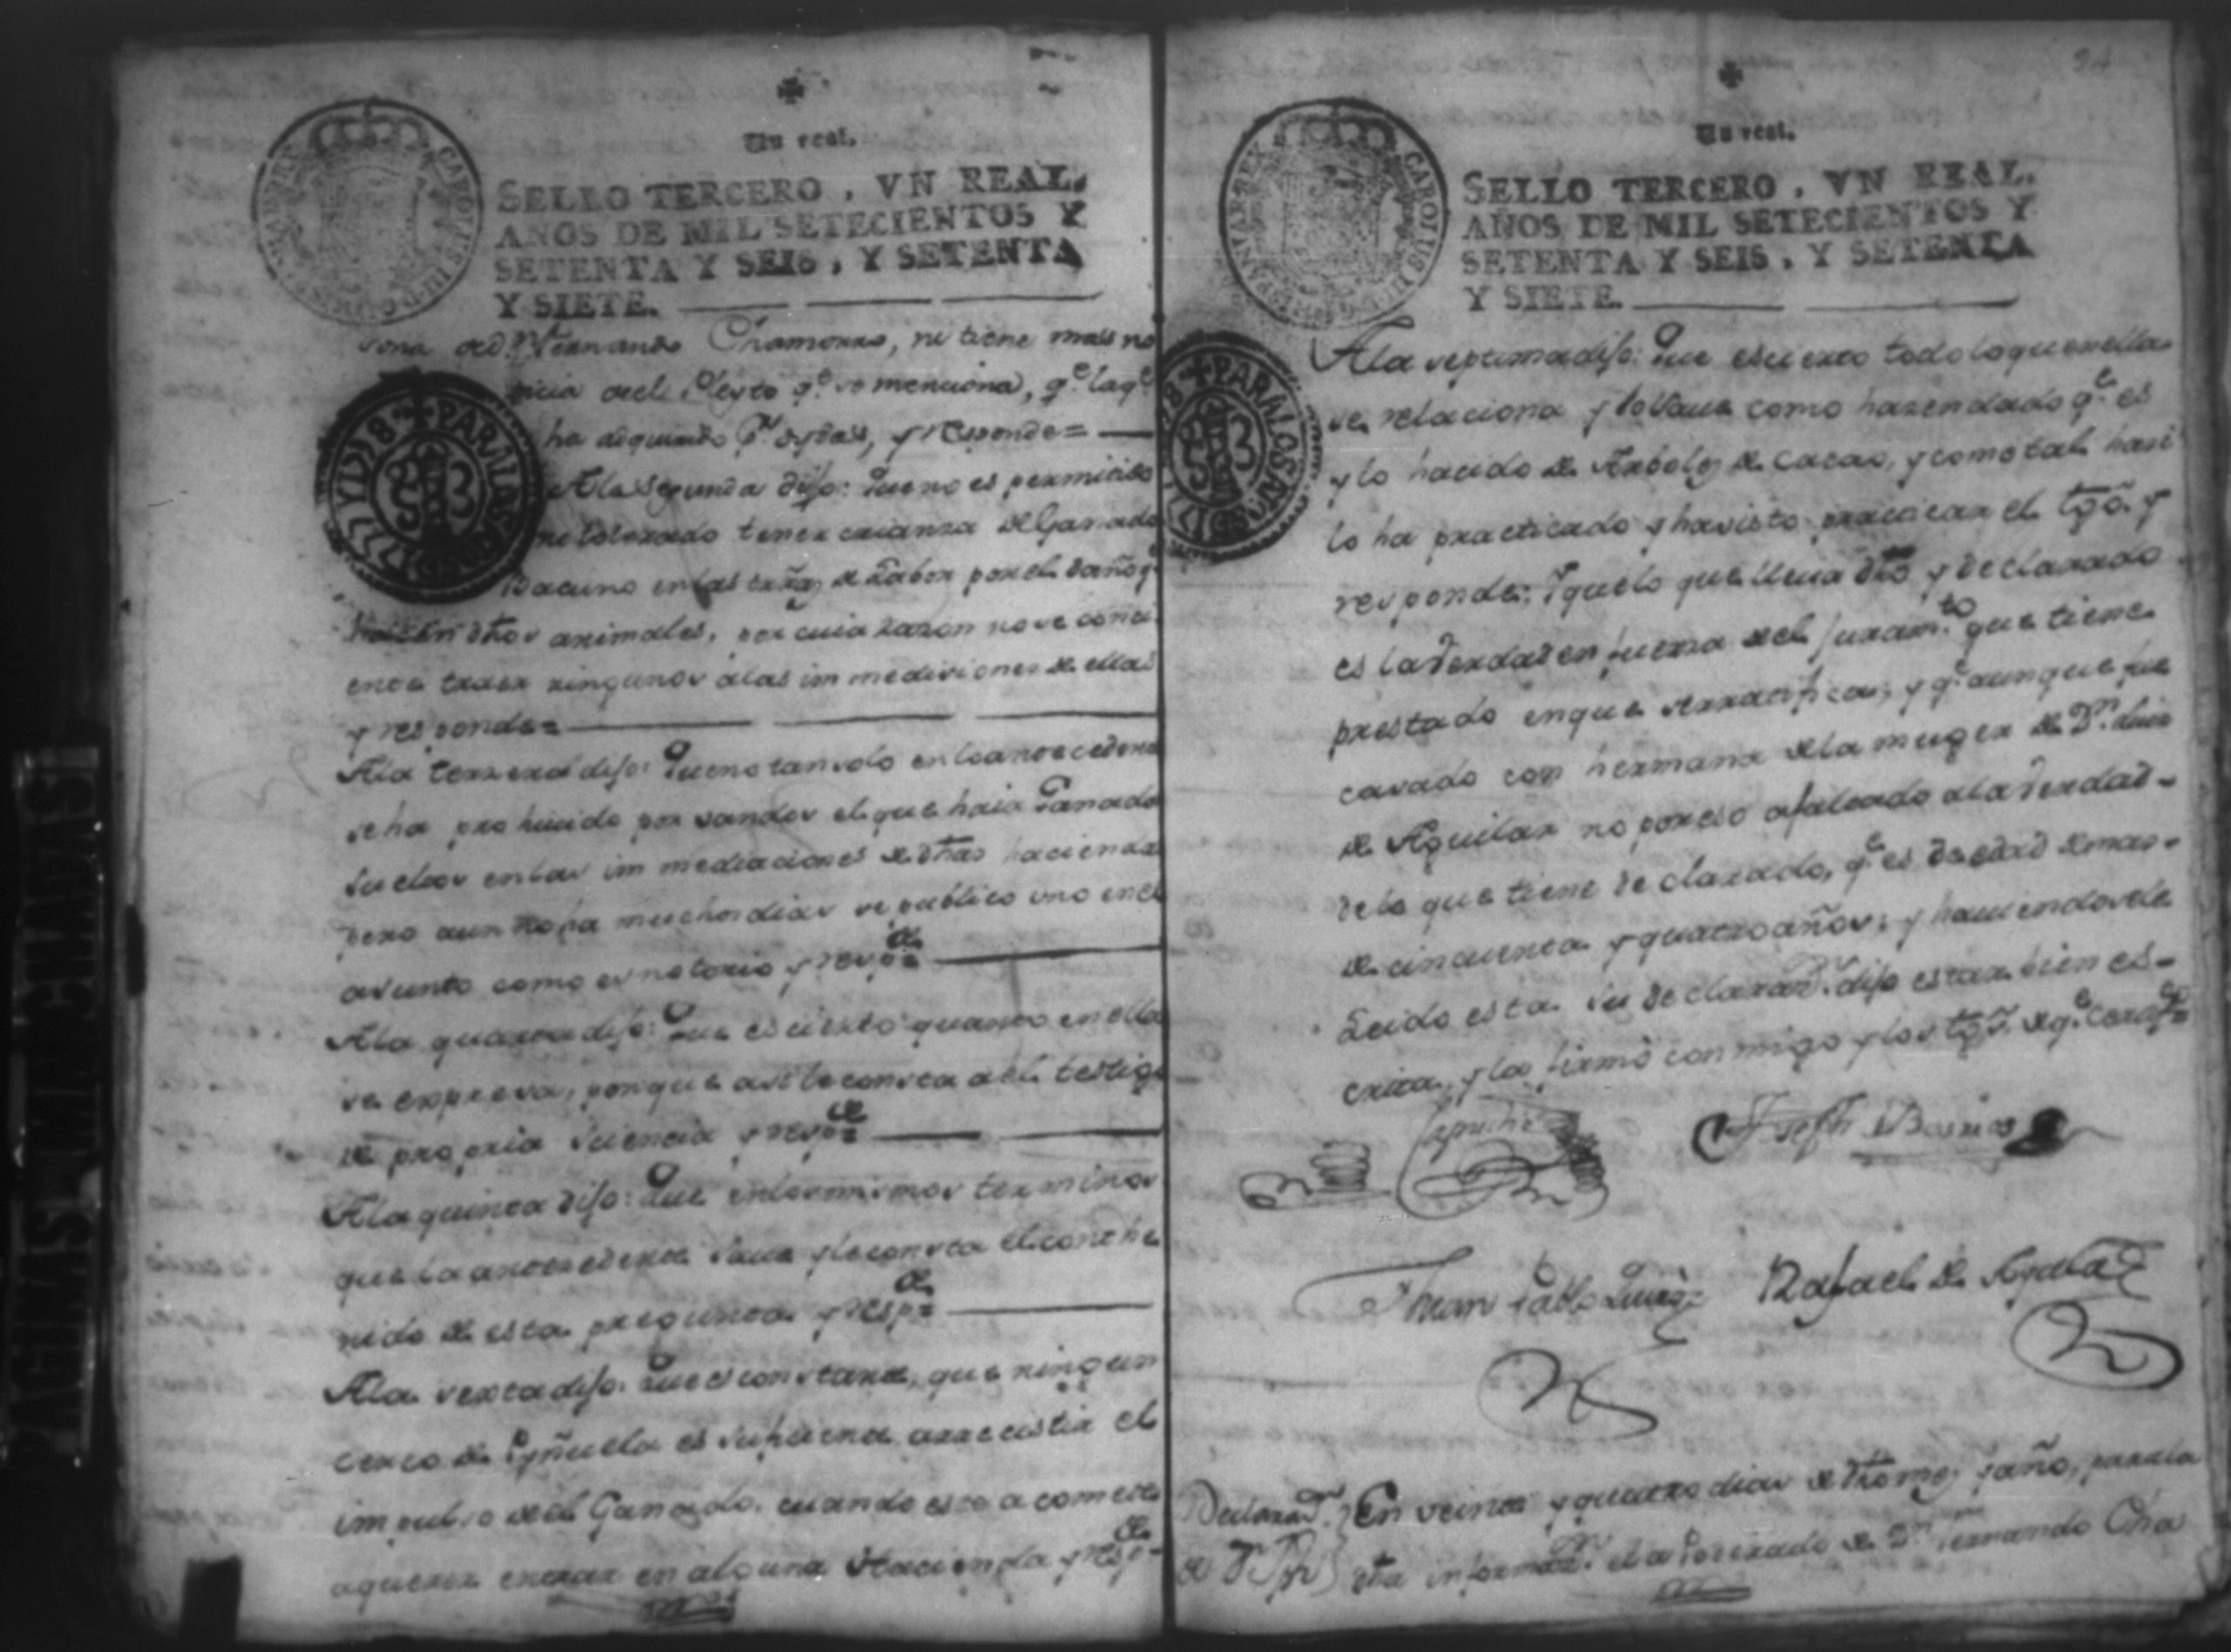 Un real.
SELLO TERCERO, VN REAL,
AÑOS DE MIL SETECIENTOS Y
SETENTA Y SEIS, Y SETENTA
Y SIETE.
CAROLUS III D G HISPANIAR REX
sona de Dn. Fernando Chamorro, ni tiene mas no
ticia del Pleyto qe. se menciona, qe. la qe.
ha adquirido pr. oydas, y responde=
PARA LOS AÑOS D 1777 Y 1778
A la segunda dijo: Que no es permitido
ni tolerado tener crianza de Ganado
Bacuno en las de Labor por el daño qe.
hacen dhos animales, por cuia razon no se consi
ente traer ningunos a las immediciones de ellas
y responde=
A la terzera dijo: Que no tan solo en lo antecedente
se ha prohivido por vandos el que haia Ganado
suelto en las immediaciones de dhas haciendas
pero aun no ha muchos dias se publico uno en el
asunto como es notorio y respde=
A la quarta dijo: Que es cierto quanto en ella
se expresa, porque asi le consta al testigo
de propria sciencia y respde=
A la quinta dijo: Que en los mismos terminos
que la antecedente save y le consta el conthe
nido de esta pregunta y respde=
A la sexta dijo: Que es constante, que ningun
cerco de Pyñuela es suficiente arrecistir el
impulso del Ganado, cuando este acomete
aquerer entrar en alguna Hacienda y respde=
94
Un real.
SELLO TERCERO, VN REAL.
AÑOS DE MIL SETECIENTOS Y
SETENTA Y SEIS, Y SETENTA
Y SIETE.
CAROLUS III D G HISPANIAR REX
PARA LOS AÑOS D 1777 Y 1778
A la septima dijo: Que es cierto todo lo que en ella
se relaciona y lo save como hazendado qe. es
y lo ha sido de Arboles de cacao, y como tal hasi
lo ha practicado y ha visto practicar el tgo. y
responde: Y que lo que lleva dho y declarado
es la Verdad en fuerza del Juramto. que tiene
prestado en que se rratifica, y qe. aunque fue
casado con hermana de la muger de Dn. Luis
de Aguilar no por eso a faltado a la Verdad
de lo que tiene declarado, qe. es de edad de mas
de cincuenta y quatro años; y haviendosele
Leido esta su declarazn. dijo estar bien es-
crita, y la firmó conmigo y los tgos. de qe. certifco=
Joseph Barrios
Juan Pablo Rafael de Ayala
Declarazn. En veinte y quatro dias de dho mes y año, para la
de dha informazn. el apoderado de Dn. Fernando Cha